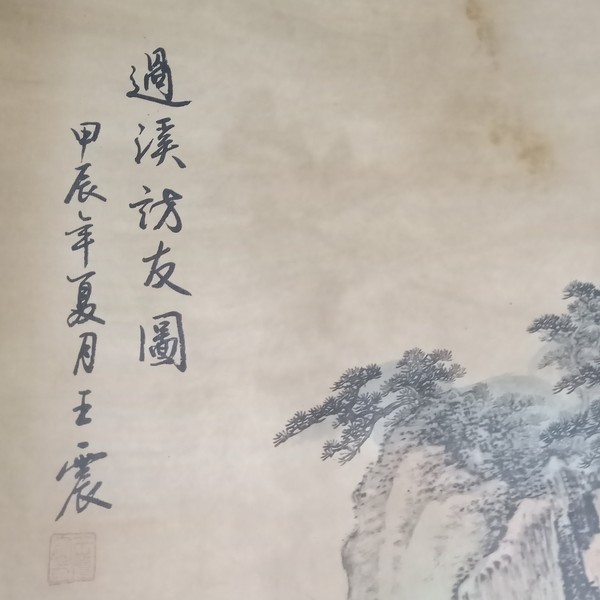 過溪訪友圖
甲辰年夏月王震